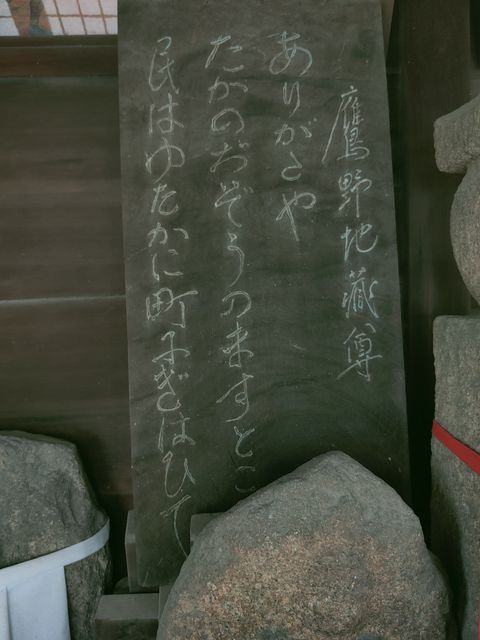 鷹野地蔵尊
ありがたや
たかのぢぞうのますとこ
民はゆたかに町にぎはひて